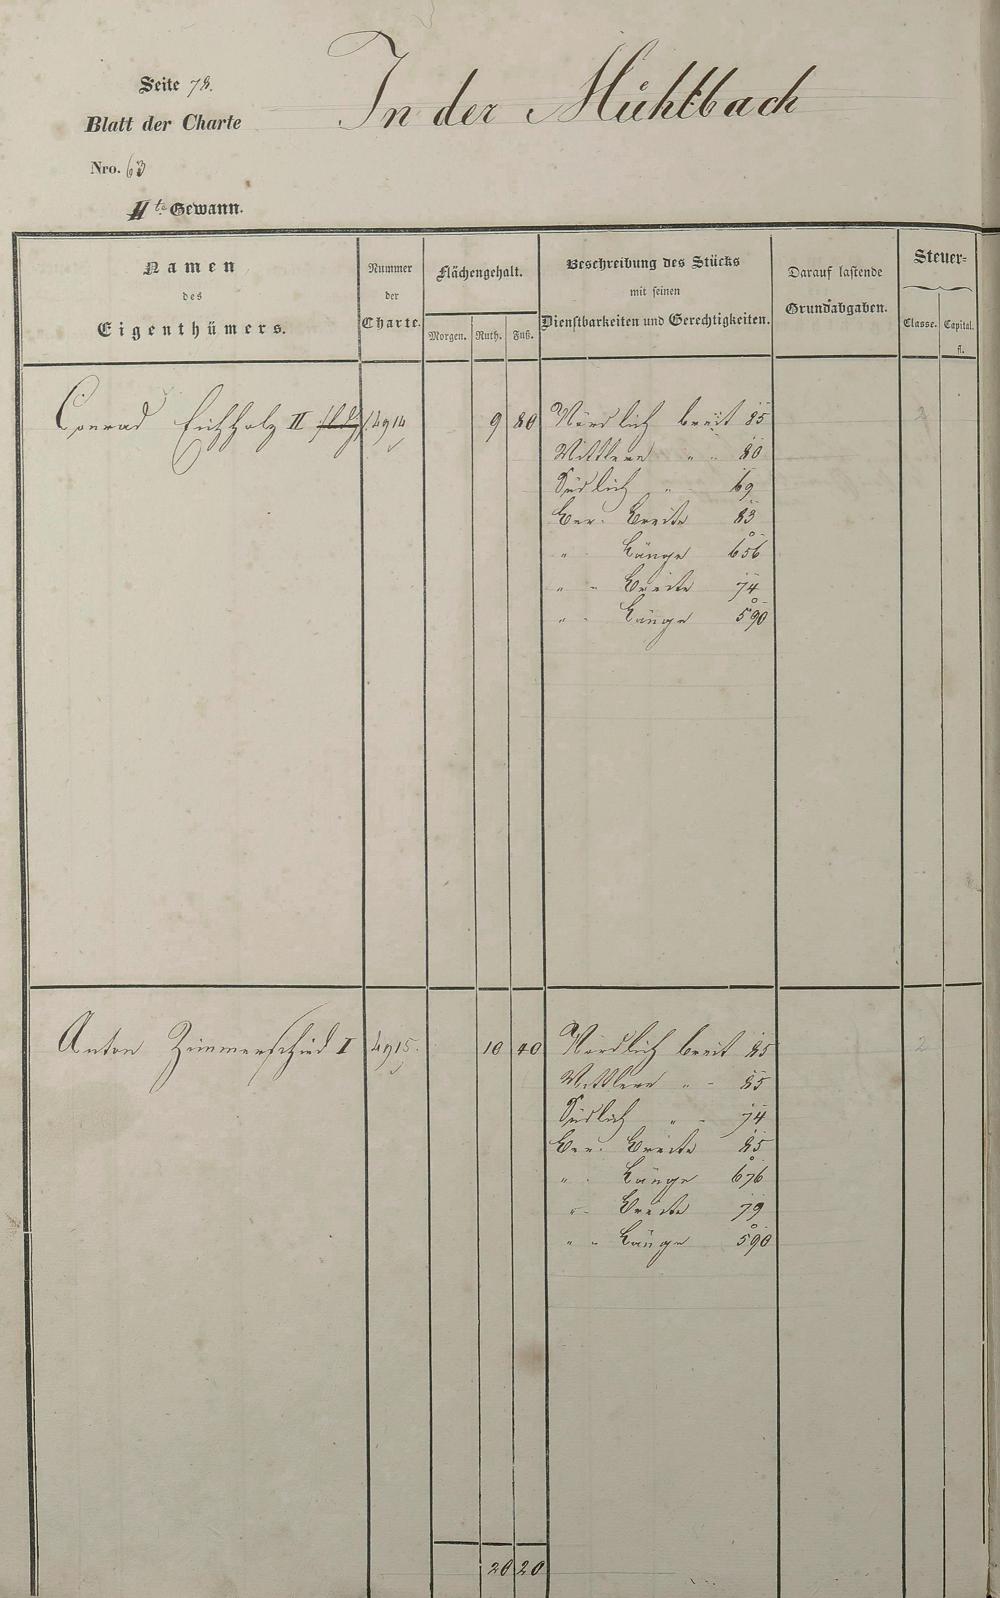 Seite 78.
In der Mühlbach
Blatt der Charte
Nro. 63
IIte Gewann.
Namen des Eigenthümers.
Nummer der Charte.
Flächengehalt.
Morgen. Ruth. Fuß.
Beschreibung des Stücks
mit seinen
Dienstbarkeiten und Gerechtigkeiten.
Darauf lastende
Grundabgaben.
Steuer-
Classe. Capital.
fl.
Conrad Eichholz II 4914 9 80 Nördlich breit 85 2
Mittlere " " 80
Südlich " 69
Ber. Breite 83
" Länge 656
" " Breite 74
" " Länge 590
Anton Zimmerschied I 4915. 10 40 Nördlich breit 85 2
Mittlere " " 85
Südlich " " 74
Ber. Breite 85
" Länge 676
" Breite 79
" " Länge 590
20 20